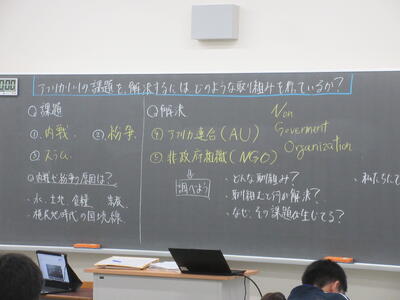 アフリカ州の課題を、解決するためには どのような取り組みを行っているか?
Q 課題
①内戦 ②紛争
③スラム
Q 内戦や紛争の原因は?
・水、土地、食糧 宗教
・植民地時代の国境線
Q 解決
④ アフリカ連合 (AU)
⑤ 非政府組織 (NGO)
調べよう
・どんな取組み?
・取り組むと何が解決?
・なぜ、その課題が生じてる?
Non
Goverment
Organization
・私たちにで